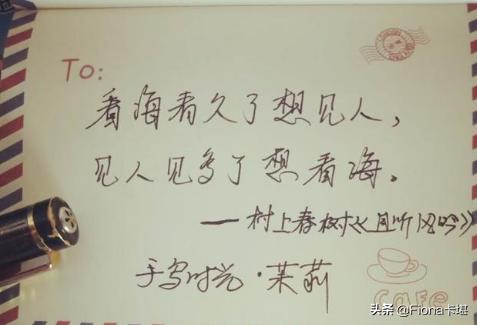 To:
看海看久了想见人，
见人见多了想看海。
——村上春树《且听风吟》
手写时光·茉莉
Cafe
头条 @Fiona卡堪